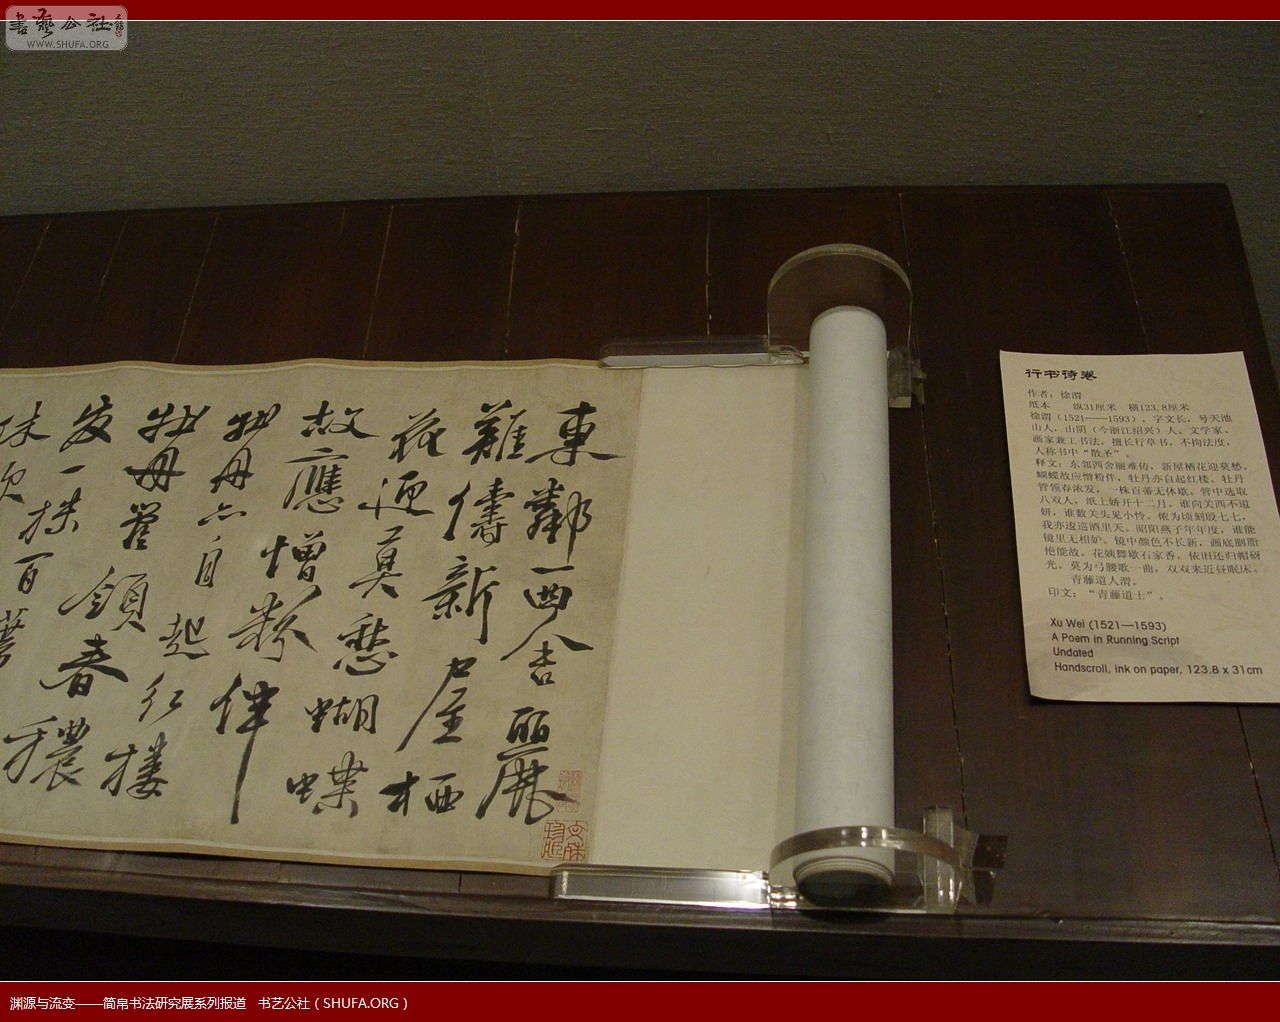 書藝公社
WWW.SHUFA.ORG
東鄰西舍麗
難儔新屋栖
花迎莫愁蝴蝶
故應憎粉伴
牡丹亦自起紅樓
牡丹管領春穠
發一株百蕃
行书诗卷
作者：徐渭
纸本 纵31厘米 横123.8厘米
徐渭（1521——1593），字文长，号天池
山人，山阴（今浙江绍兴）人。文学家、
画家兼工书法，擅长行草书，不拘法度，
人称书中“散圣”。
释文：东邻西舍丽难俦，新屋栖花迎莫愁，
蝴蝶故应憎粉伴，牡丹亦自起红楼。牡丹
管领春浓发，一株百蕃无休歇。管中选取
八双人，纸上娇开十二月。谁向关西不道
妍，谁数关头见小怜。侬为顷刻殷七七，
我亦逡巡酒里天。昭阳燕子年年度，谁能
镜里无相妒。镜中颜色不长新，画底胭脂
艳能故。花姨舞歇石家香，依旧还归帽砑
光。莫为弓腰歌一曲，双双来近昼眠床。
青藤道人渭。
印文：“青藤道士”。
Xu Wei (1521—1593)
A Poem in Running Script
Undated
Handscroll, ink on paper, 123.8 x 31cm
渊源与流变——简帛书法研究展系列报道 书艺公社（SHUFA.ORG）